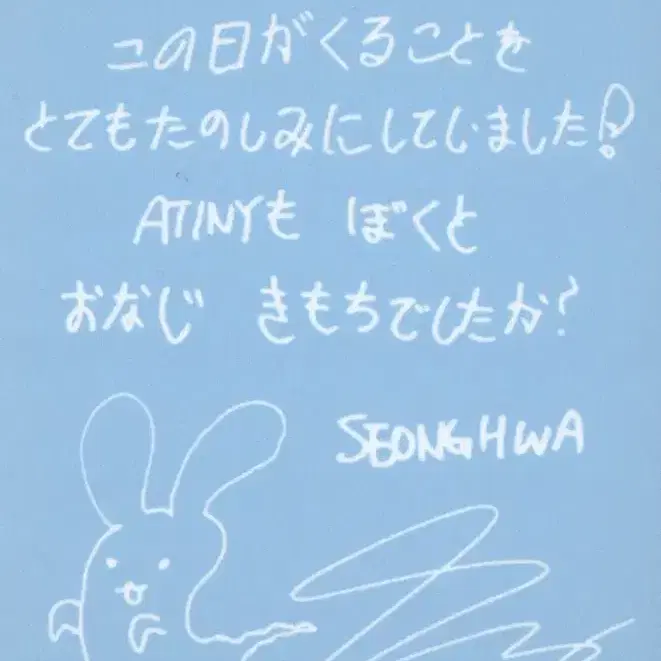 この日がくることを
とてもたのしみにしていました!
ATINYも ぼくと
おなじ きもちでしたか?
SEONGHWA